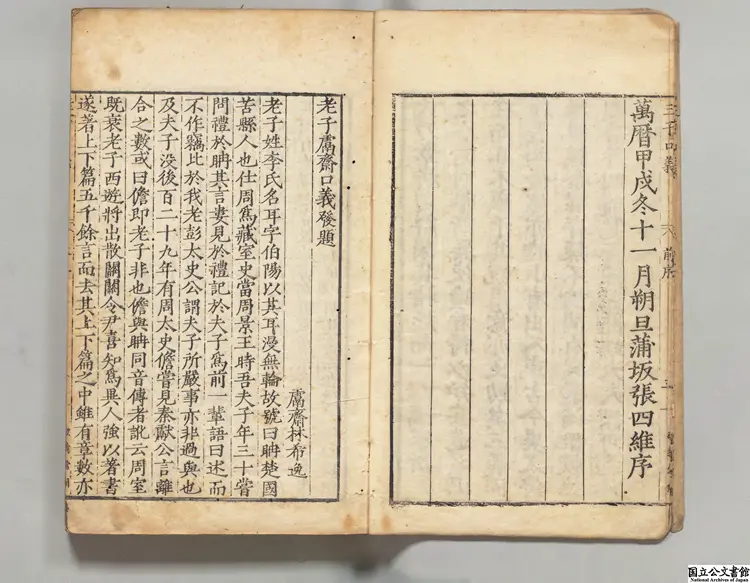 三子口義
前序
三
萬曆甲戌冬十一月朔旦蒲坂張四維序
老子鬳齋口義發題
鬳齋林希逸
老子姓李氏名耳字伯陽以其耳漫無輪故號曰聃楚國
苦縣人也仕周爲藏室史當周景王時吾夫子年三十嘗
問禮於聃其言妻見於禮記於夫子爲前一輩語曰述而
不作竊比於我老彭太史公謂夫子所嚴事亦非過與也
及夫子没後百二十九年有周太史儋嘗見秦獻公言離
合之數或曰儋即老子非也儋與聃同音傳者訛云周室
既衰老子西遊將出散關關令尹喜知爲異人強以著書
遂著上下篇五千餘言而去其上下篇之中雖有章數亦
国立公文書館
National Archives of Japan